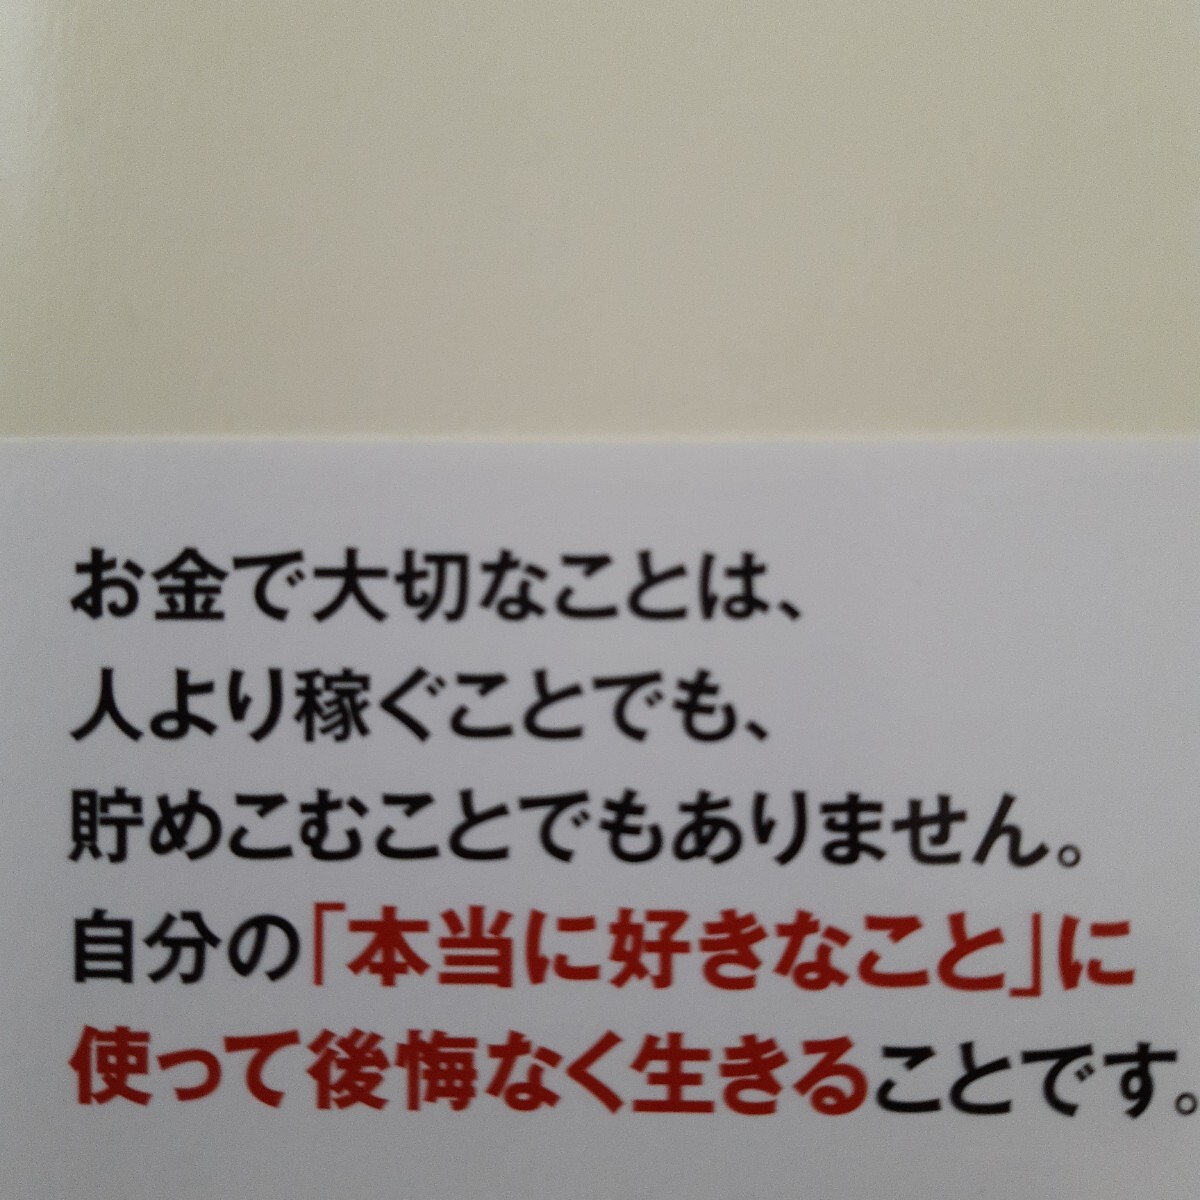 お金で大切なことは、
人より稼ぐことでも、
貯めこむことでもありません。
自分の「本当に好きなこと」に
使って後悔なく生きることです。